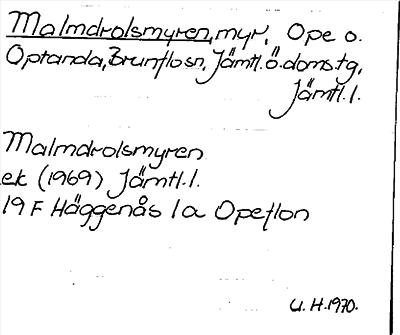 Malmdrolsmyren, myr, Ope o.
Optanda, Brunflo sn, Jämtl. ö. doms.tg,
Jämtl. l.
Malmdrolsmyren
ek (1969) Jämtl. l.
19 F Häggenås 1a Opeflon
U. H. 1970.